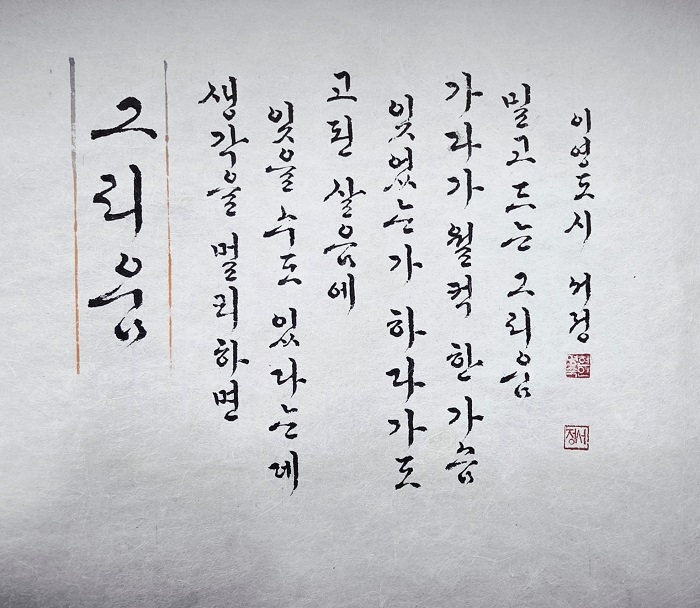 그리움
생각을 멀리하면
잊을 수도 있다는데
고된 살음에
잊었는가 하다가도
가다가 월컥 한 가슴
밀고 드는 그리움
이영도 시 서정
서정